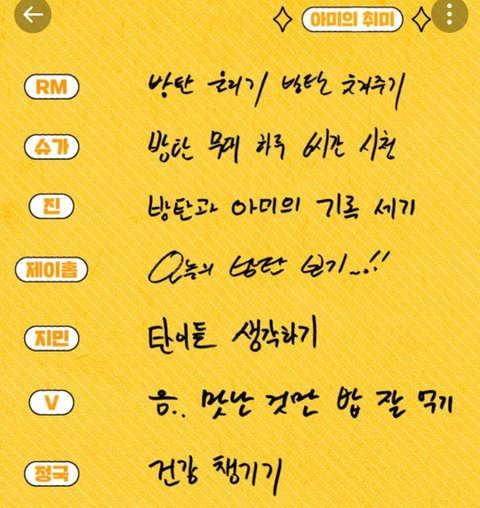 아미의 취미
RM 방탄 놀리기 / 방탄 춰주기
슈가 방탄 무대 하루 6시간 시청
진 방탄과 아미의 기록 세기
제이홉 오늘의 방탄 보기...!!
지민 탄이들 생각하기
V 음.. 맛난 것만 밥 잘 먹기
정국 건강 챙기기